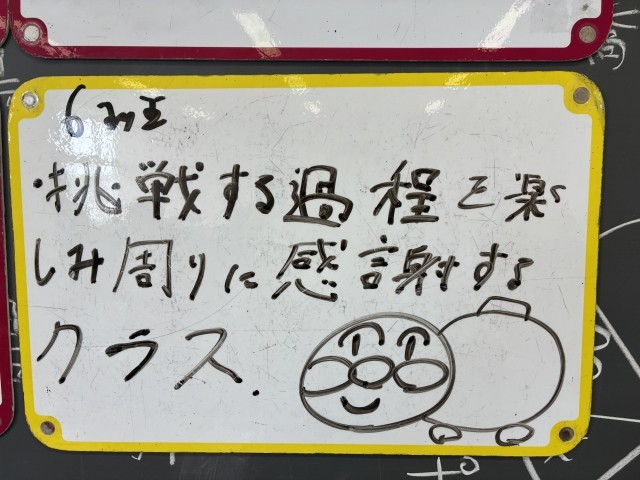 6班
・挑戦する過程を楽
しみ周りに感謝する
クラス.